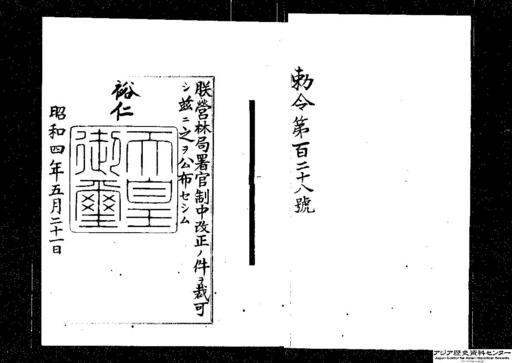 勅令第百二十八號
朕營林局署官制中改正ノ件ヲ裁可
シ茲ニ之ヲ公布セシム
裕仁
天皇
御璽
昭和四年五月二十一日
アジア歴史資料センター
Japan Center for Asian Historical Records